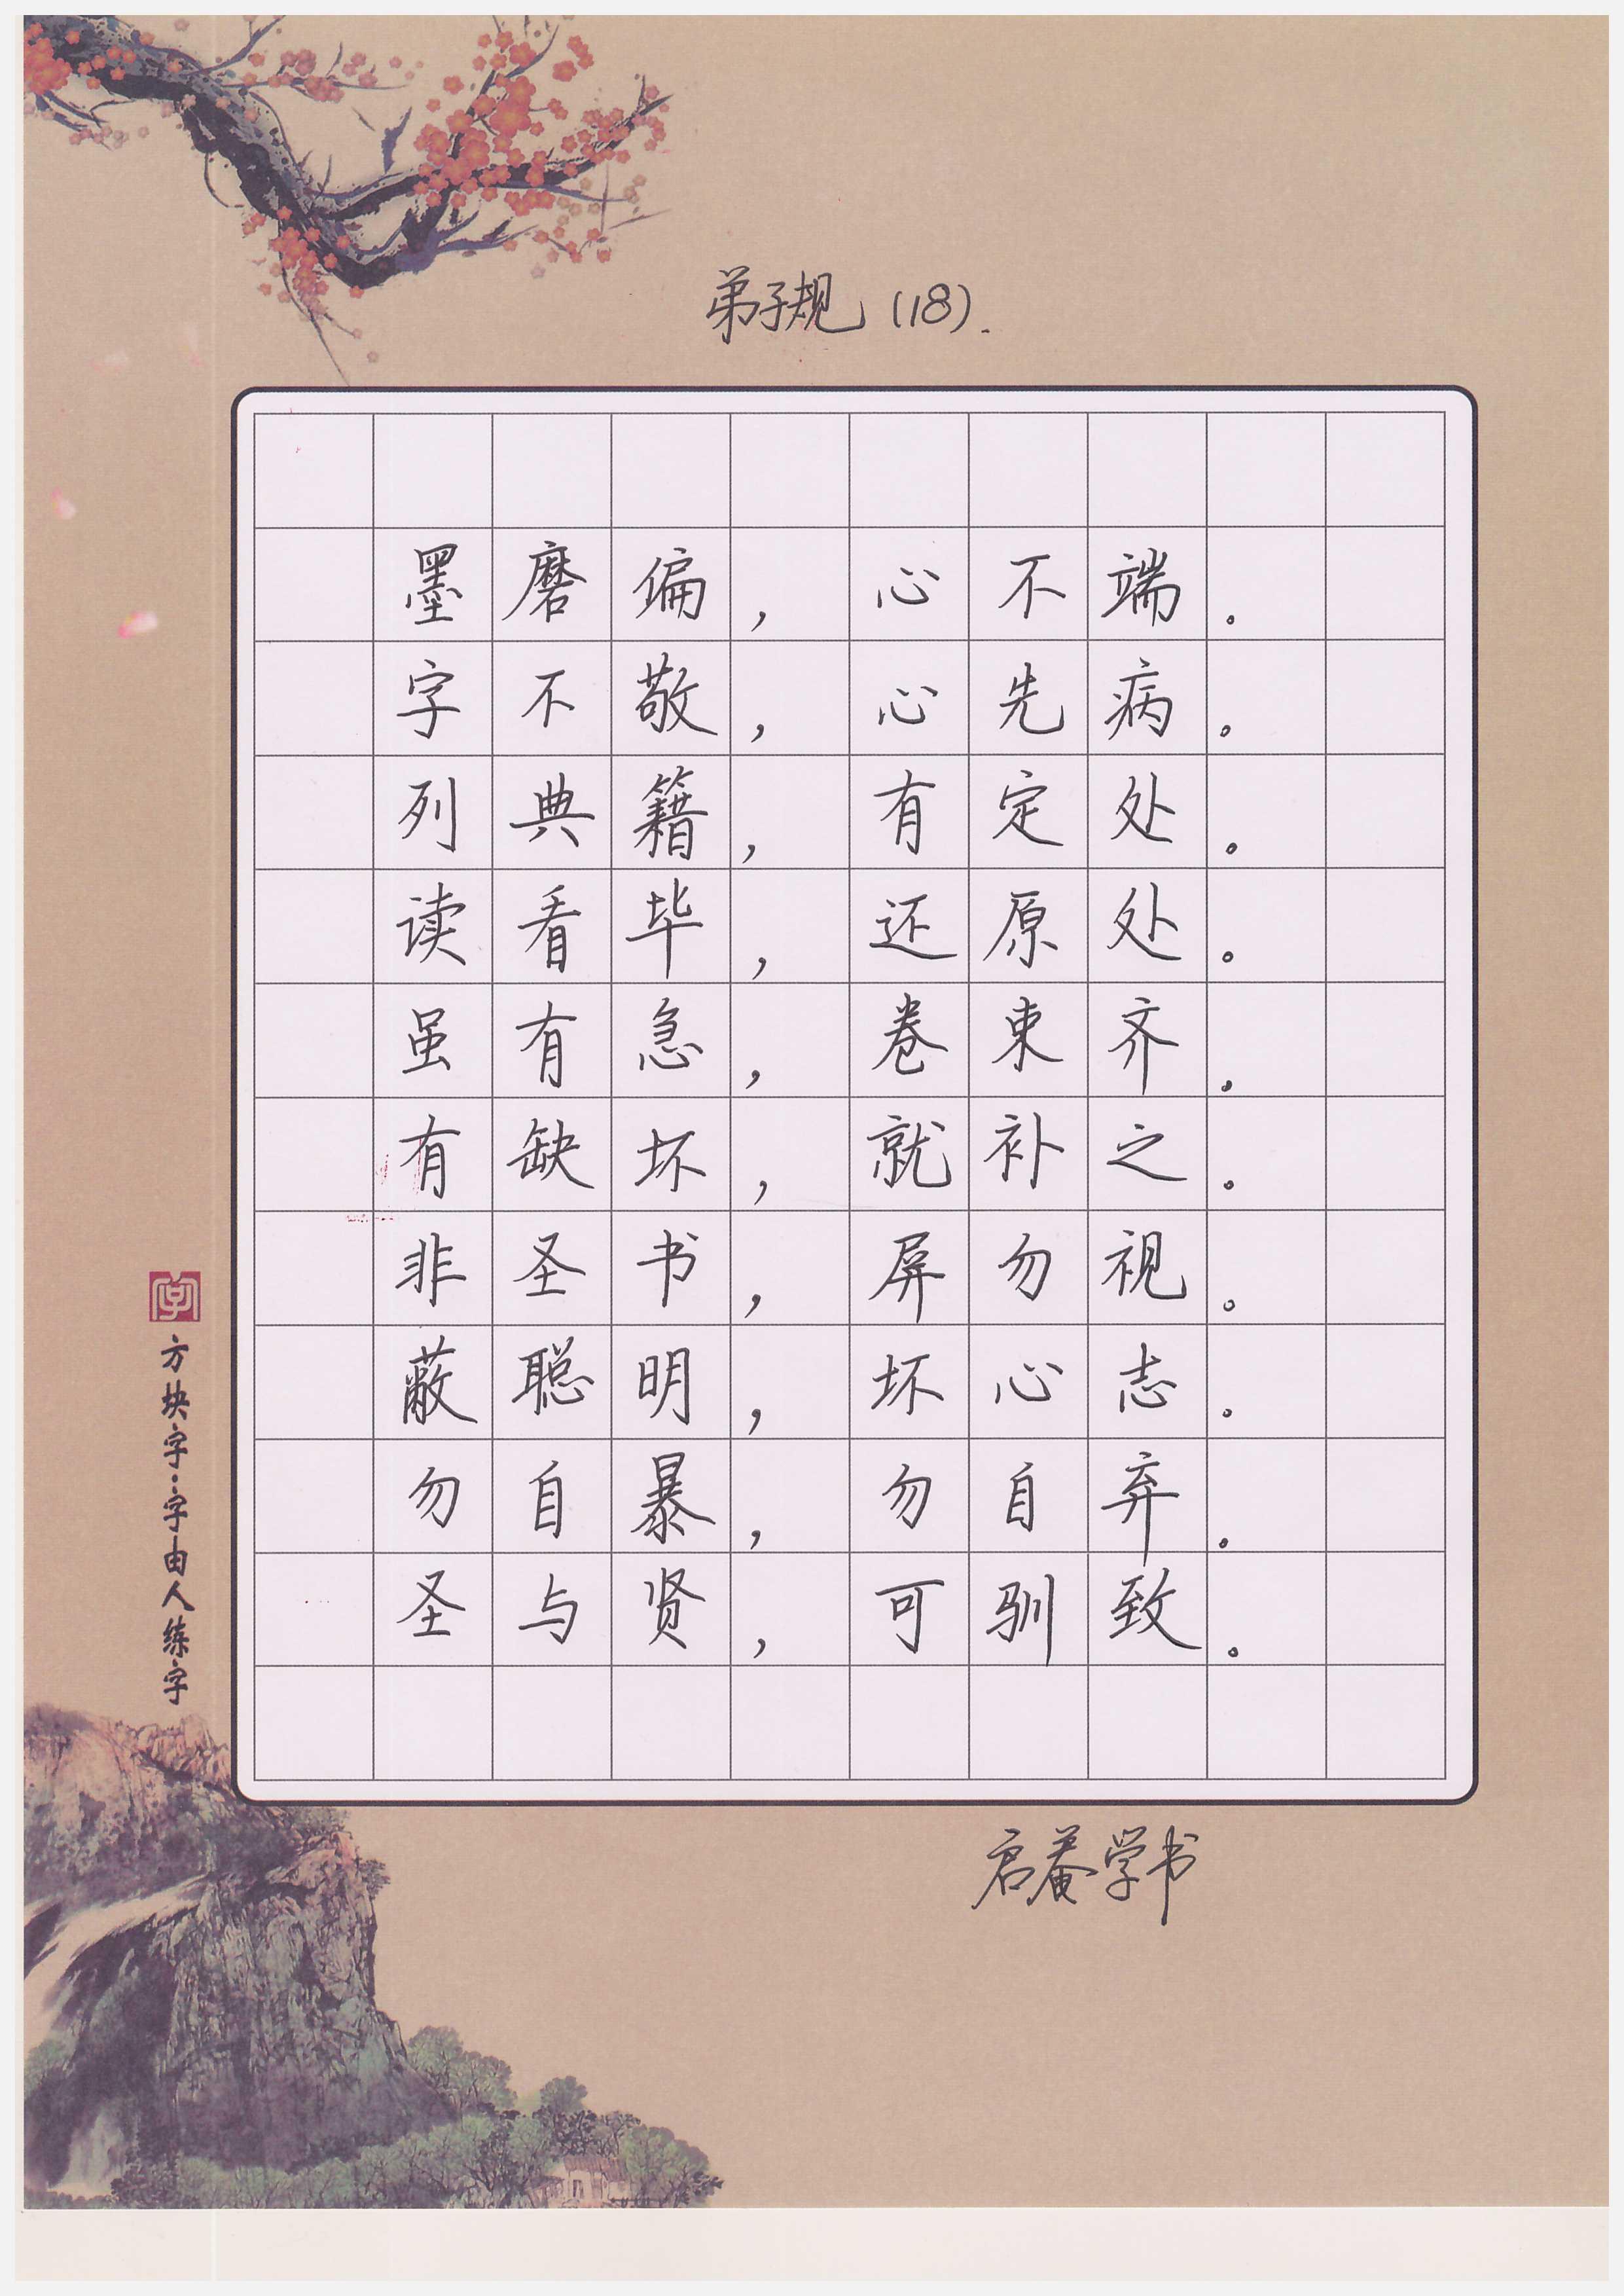 弟子规(18).
墨磨偏,心不端。
字不敬,心先病。
列典籍,有定处。
读看毕,还原处。
虽有急,卷束齐。
有缺坏,就补之。
非圣书,屏勿视。
蔽聪明,坏心志。
勿自暴,勿自弃。
圣与贤,可驯致。
方块字·字由人练字
启菴学书